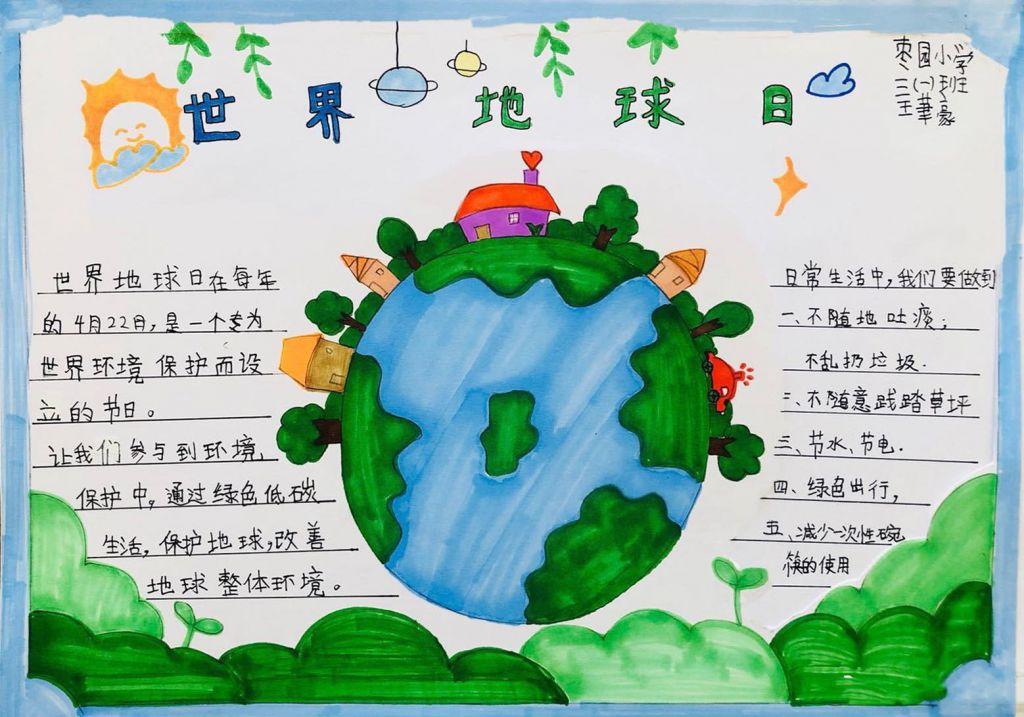 世界地球日
枣园小学
三(一)班
王華豪
世界地球日在每年
的4月22日,是一个专为
世界环境保护而设
立的节日。
让我们参与到环境,
保护中,通过绿色低碳
生活,保护地球,改善
地球整体环境。
日常生活中,我们要做到
一、不随地吐痰;
不乱扔垃圾.
二、不随意践踏草坪
三、节水、节电.
四、绿色出行,
五、减少一次性碗
筷的使用